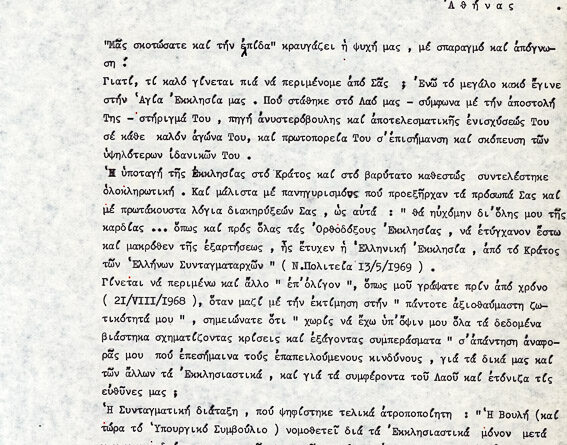 Ἀθήνας .
"Μᾶς σκοτώσατε καί τήν ἐλπίδα" κραυγάζει ἡ ψυχή μας , μέ σπαραγμό καί ἀπόγνω-
ση !
Γιατί, τί καλό γίνεται πιά νά περιμένομε ἀπό Σᾶς ; Ἐνῶ τό μεγάλο κακό ἔγινε
στήν Ἁγία Ἐκκλησία μας . Πού στάθηκε στό Λαό μας - σύμφωνα μέ τήν ἀποστολή
Της - στήριγμά Του , πηγή ἀνυστερόβουλης καί ἀποτελεσματικῆς ἐνισχύσεώς Του
σέ κάθε καλόν ἀγώνα Του, καί πρωτοπορεία Του σ'ἐπισήμανση καί σκόπευση τῶν
ὑψηλότερων ἰδανικῶν Του .
Ἡ ὑποταγή τῆς Ἐκκλησίας στό Κράτος καί στό βαρύτατο καθεστώς συντελέστηκε
ὁλοκληρωτική . Καί μάλιστα μέ πανηγυρισμούς πού προεξῆρχαν τά πρόσωπά Σας καί
μέ πρωτάκουστα λόγια διακηρύξεών Σας , ὡς αὐτά : " θά ηὐχόμην δι'ὅλης μου τῆς
καρδίας ... ὅπως καί πρός ὅλας τάς Ὀρθοδόξους Ἐκκλησίας , νά ἐτύγχανον ἔστω
καί μακρόθεν τῆς ἐξαρτήσεως , ἧς ἔτυχεν ἡ Ἑλληνική Ἐκκλησία , ἀπό τό Κράτος
τῶν Ἑλλήνων Συνταγματαρχῶν " ( Ν.Πολιτεία 13/5/1969 ) .
Γίνεται νά περιμένω καί ἄλλο " ἐπ'ὀλίγον ", ὅπως μοῦ γράψατε πρίν ἀπό χρόνο
( 2I/VIII/1968 ), ὅταν μαζί μέ τήν ἐκτίμηση στήν " πάντοτε ἀξιοθαύμαστη ζω-
τικότητά μου " , σημειώνατε ὅτι " χωρίς νά ἔχω ὑπ'ὄψιν μου ὅλα τά δεδομένα
βιάστηκα σχηματίζοντας κρίσεις καί ἐξάγοντας συμπεράσματα " σ'ἀπάντηση ἀναφο-
ρᾶς μου πού ἐπεσήμαινα τούς ἐπαπειλούμενους κινδύνους , γιά τά δικά μας καί
τῶν ἄλλων τά Ἐκκλησιαστικά , καί γιά τά συμφέροντα τοῦ Λαοῦ καί ἐτόνιζα τίς
εὐθῦνες μας ;
Ἡ Συνταγματική διάταξη , πού ψηφίστηκε τελικά ἀτροποποίητη : "Ἡ Βουλή (καί
τώρα τό Ὑπουργικό Συμβούλιο ) νομοθετεῖ διά τά Ἐκκλησιαστικά μόνον μετά